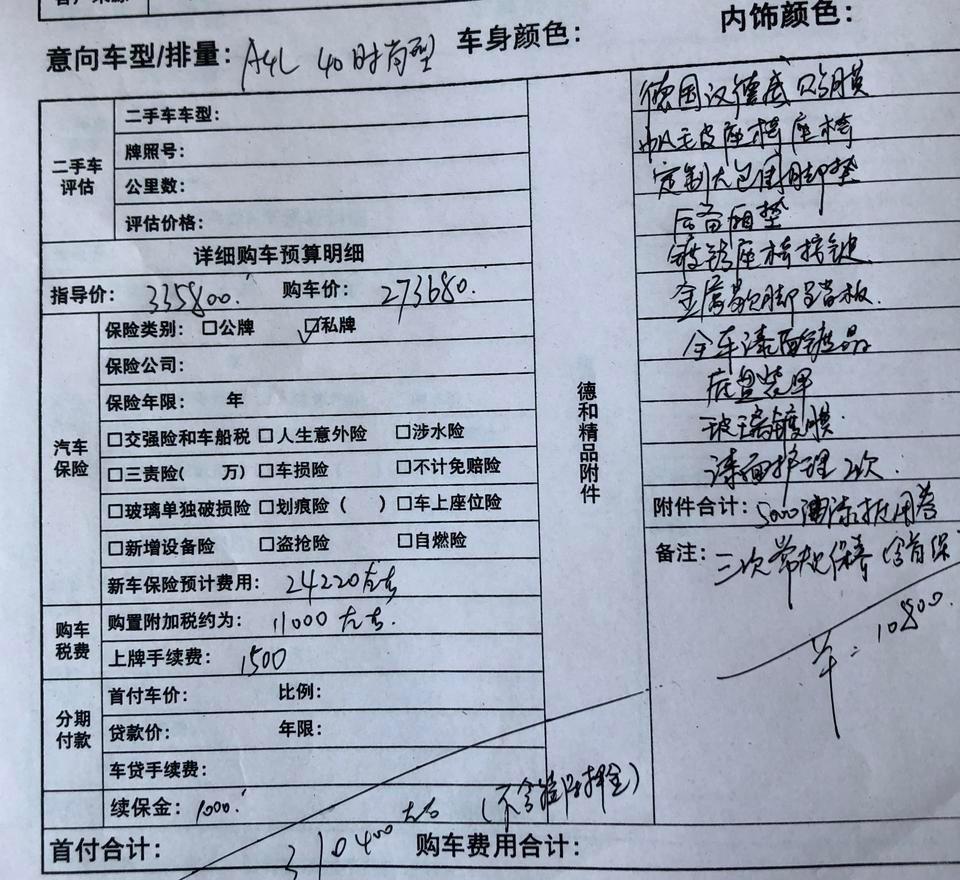 意向车型/排量: A4L 40时尚型 车身颜色: 内饰颜色:
二手车评估
二手车车型:
牌照号:
公里数:
评估价格:
详细购车预算明细
指导价: 335800. 购车价: 273680.
汽车保险
保险类别: □公牌 ☑私牌
保险公司:
保险年限: 年
□交强险和车船税 □人生意外险 □涉水险
□三责险( 万) □车损险 □不计免赔险
□玻璃单独破损险 □划痕险 ( ) □车上座位险
□新增设备险 □盗抢险 □自燃险
新车保险预计费用: 24220左右
购车税费
购置附加税约为: 11000左右.
上牌手续费: 1500
分期付款
首付车价: 比例:
贷款价: 年限:
车贷手续费:
续保金: 1000.
首付合计: 310400左右 (不含 押金) 购车费用合计:
德和精品附件
德国汉德威 膜
座椅座椅
定制大包围脚垫
后备箱垫
座椅按键
金属 脚踏板.
全车漆面镀晶
底盘装甲
玻璃镀膜.
漆面护理2次.
附件合计: 5000 抵用券
备注: 三次常规保养 含首保
10800.